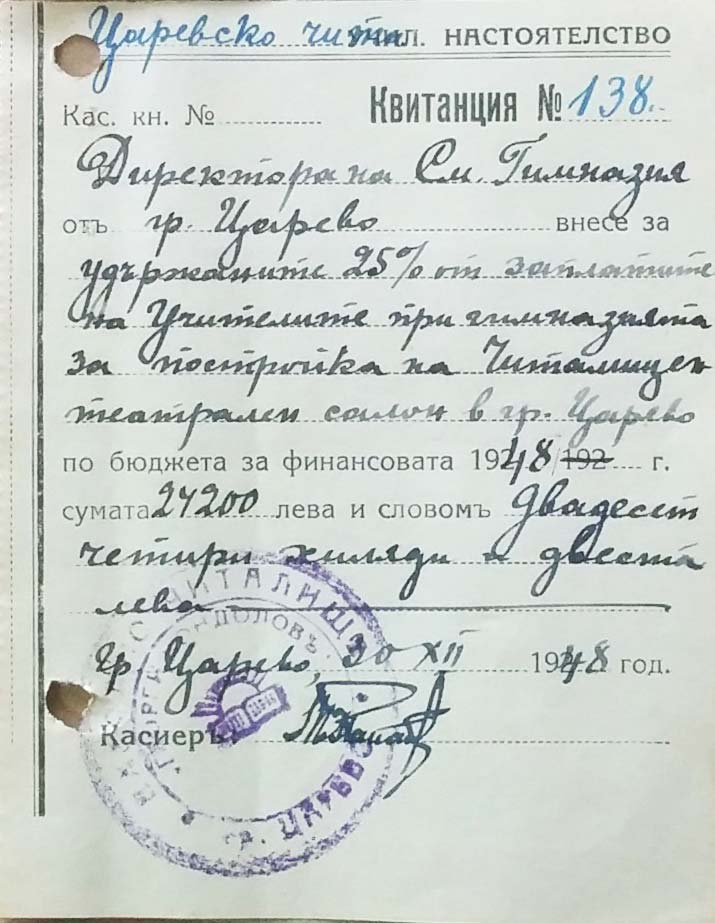 Царевско читал. НАСТОЯТЕЛСТВО
Кас. кн. №
Квитанция № 138.
Директора на См. Гимназия
отъ гр. Царево внесе за
удържаните 25% от заплатите
на Учителите при гимназията
за постройка на Читалищен
театрален салон в гр. Царево
по бюджета за финансовата 1948/192 г.
сумата 24200 лева и словомъ двадесет
четири хиляди и двеста
лева
гр. Царево, 30 XII 1948 год.
Касиеръ:
ЧИТАЛИЩЕ
гр. ЦАРЕВО